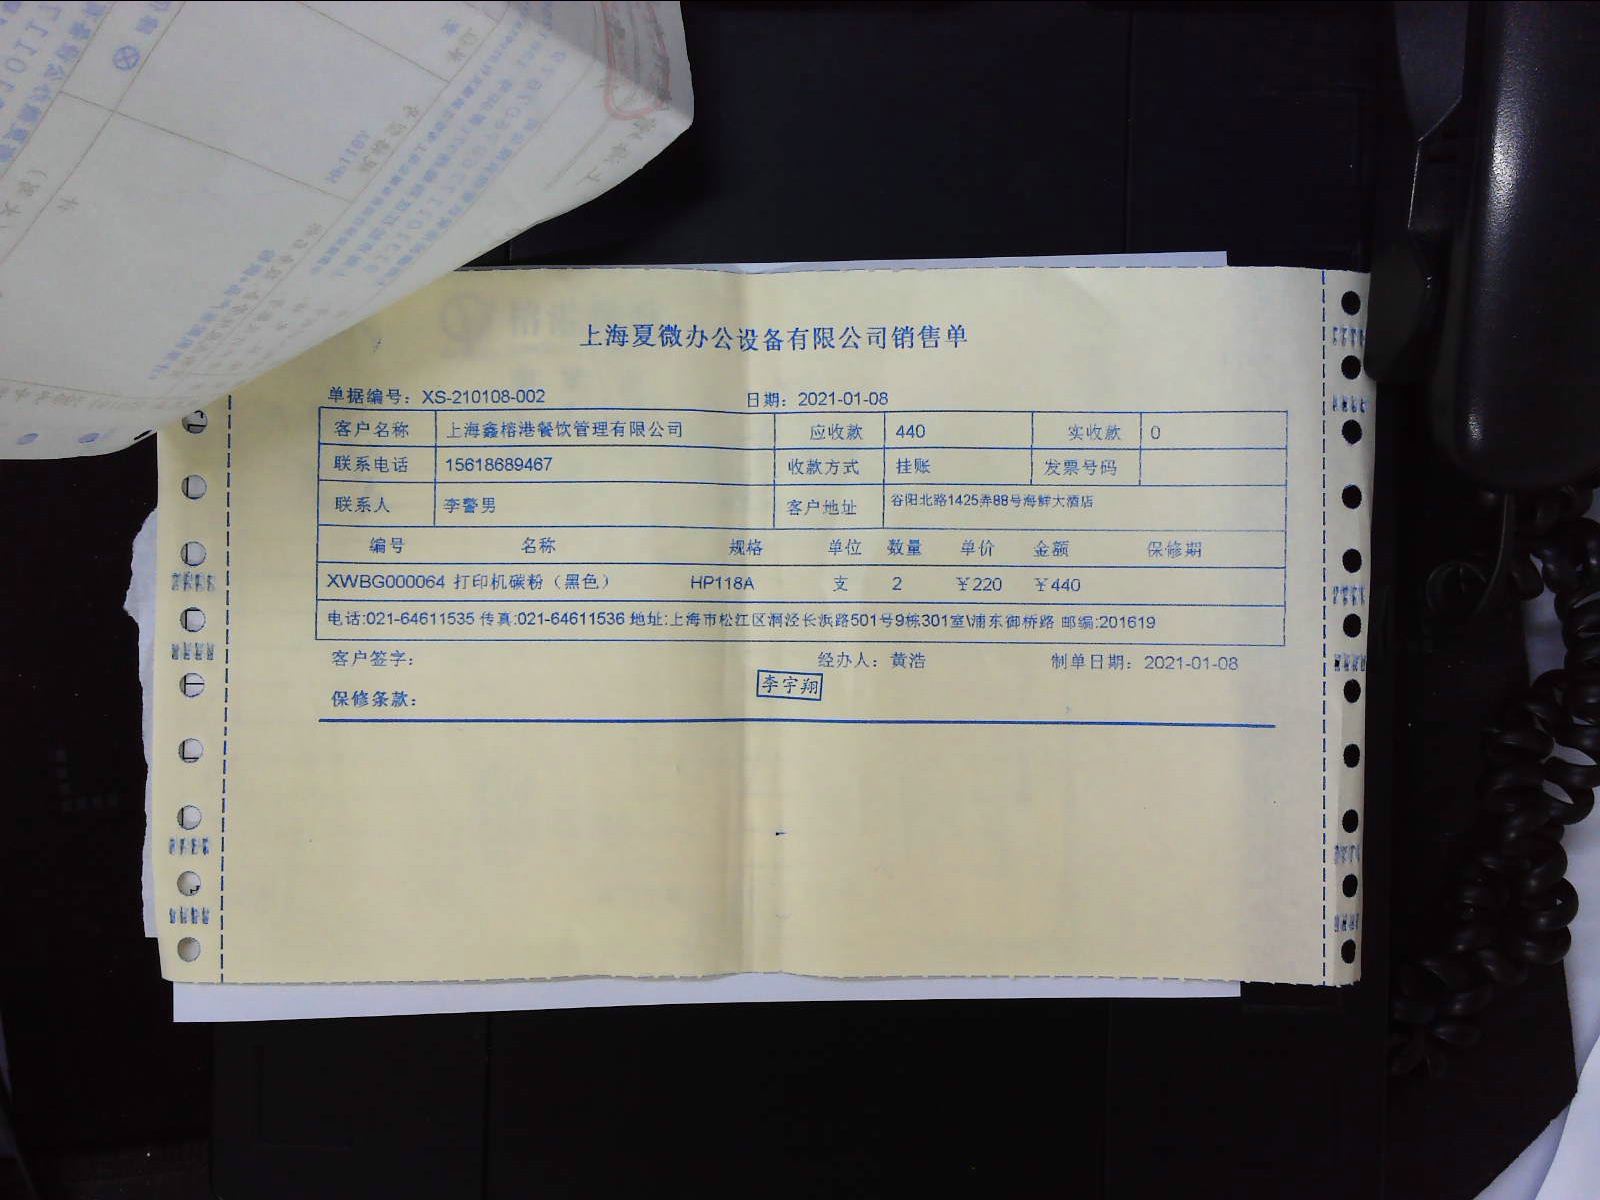 上海夏微办公设备有限公司销售单
单据编号：XS-210108-002 日期：2021-01-08
客户名称 上海鑫榕港餐饮管理有限公司 应收款 440 实收款 0
联系电话 15618689467 收款方式 挂账 发票号码
联系人 李警男 客户地址 谷阳北路1425弄88号海鲜大酒店
编号 名称 规格 单位 数量 单价 金额 保修期
XWBG000064 打印机碳粉（黑色） HP118A 支 2 ￥220 ￥440
电话:021-64611535 传真:021-64611536 地址:上海市松江区洞泾长浜路501号9栋301室\浦东御桥路 邮编:201619
客户签字： 经办人：黄浩 制单日期：2021-01-08
李宇翔
保修条款：